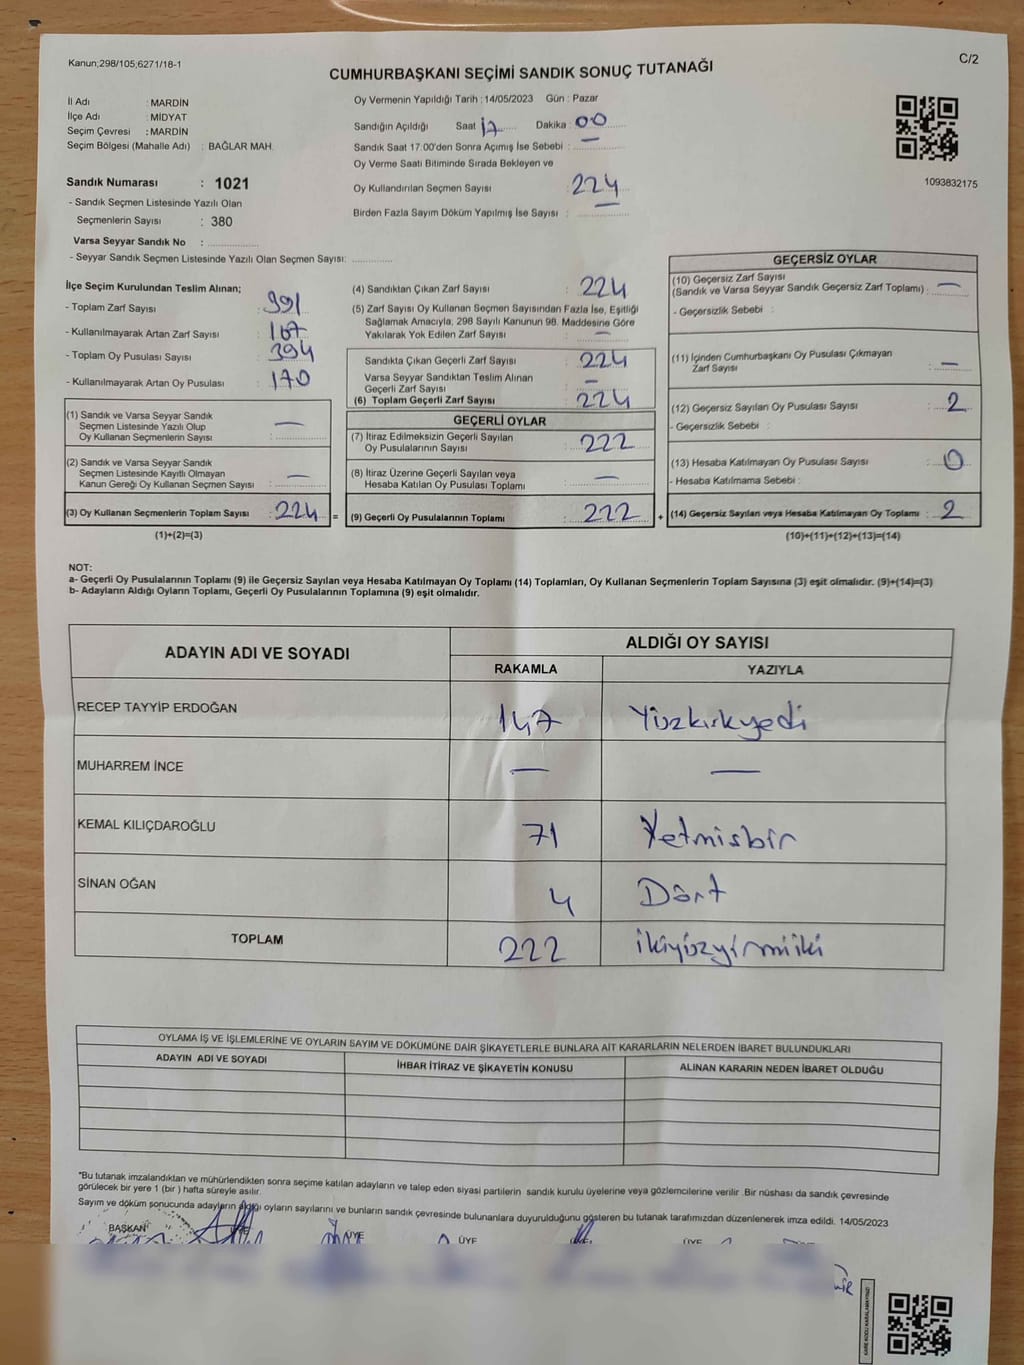 Kanun;298/105;6271/18-1
C/2
CUMHURBAŞKANI SEÇİMİ SANDIK SONUÇ TUTANAĞI
İl Adı : MARDİN
İlçe Adı : MİDYAT
Seçim Çevresi : MARDİN
Seçim Bölgesi (Mahalle Adı) : BAĞLAR MAH.
Sandık Numarası : 1021
- Sandık Seçmen Listesinde Yazılı Olan
Seçmenlerin Sayısı : 380
Varsa Seyyar Sandık No :
- Seyyar Sandık Seçmen Listesinde Yazılı Olan Seçmen Sayısı:
Oy Vermenin Yapıldığı Tarih : 14/05/2023 Gün : Pazar
Sandığın Açıldığı Saat 17 Dakika : 00
Sandık Saat 17:00'den Sonra Açımış İse Sebebi : —
Oy Verme Saati Bitiminde Sırada Bekleyen ve
Oy Kullandırılan Seçmen Sayısı : 224
Birden Fazla Sayım Döküm Yapılmış İse Sayısı : —
1093832175
İlçe Seçim Kurulundan Teslim Alınan;
- Toplam Zarf Sayısı : 391
- Kullanılmayarak Artan Zarf Sayısı : 167
- Toplam Oy Pusulası Sayısı : 394
- Kullanılmayarak Artan Oy Pusulası : 170
(1) Sandık ve Varsa Seyyar Sandık
Seçmen Listesinde Yazılı Olup
Oy Kullanan Seçmenlerin Sayısı : —
(2) Sandık ve Varsa Seyyar Sandık
Seçmen Listesinde Kayıtlı Olmayan
Kanun Gereği Oy Kullanan Seçmen Sayısı : —
(3) Oy Kullanan Seçmenlerin Toplam Sayısı : 224 =
(1)+(2)=(3)
(4) Sandıktan Çıkan Zarf Sayısı : 224
(5) Zarf Sayısı Oy Kullanan Seçmen Sayısından Fazla İse, Eşitliği
Sağlamak Amacıyla; 298 Sayılı Kanunun 98. Maddesine Göre
Yakılarak Yok Edilen Zarf Sayısı : —
Sandıkta Çıkan Geçerli Zarf Sayısı : 224
Varsa Seyyar Sandıktan Teslim Alınan
Geçerli Zarf Sayısı : —
(6) Toplam Geçerli Zarf Sayısı : 224
GEÇERLİ OYLAR
(7) İtiraz Edilmeksizin Geçerli Sayılan
Oy Pusulalarının Sayısı : 222
(8) İtiraz Üzerine Geçerli Sayılan veya
Hesaba Katılan Oy Pusulası Toplamı : —
(9) Geçerli Oy Pusulalarının Toplamı : 222 +
GEÇERSİZ OYLAR
(10) Geçersiz Zarf Sayısı
(Sandık ve Varsa Seyyar Sandık Geçersiz Zarf Toplamı) : —
- Geçersizlik Sebebi :
(11) İçinden Cumhurbaşkanı Oy Pusulası Çıkmayan
Zarf Sayısı : —
(12) Geçersiz Sayılan Oy Pusulası Sayısı : 2
- Geçersizlik Sebebi :
(13) Hesaba Katılmayan Oy Pusulası Sayısı : 0
- Hesaba Katılmama Sebebi :
(14) Geçersiz Sayılan veya Hesaba Katılmayan Oy Toplamı : 2
(10)+(11)+(12)+(13)=(14)
NOT:
a- Geçerli Oy Pusulalarının Toplamı (9) ile Geçersiz Sayılan veya Hesaba Katılmayan Oy Toplamı (14) Toplamları, Oy Kullanan Seçmenlerin Toplam Sayısına (3) eşit olmalıdır. (9)+(14)=(3)
b- Adayların Aldığı Oyların Toplamı, Geçerli Oy Pusulalarının Toplamına (9) eşit olmalıdır.
ADAYIN ADI VE SOYADI ALDIĞI OY SAYISI
RAKAMLA YAZIYLA
RECEP TAYYİP ERDOĞAN 147 Yüzkırkyedi
MUHARREM İNCE — —
KEMAL KILIÇDAROĞLU 71 Yetmisbir
SİNAN OĞAN 4 Dört
TOPLAM 222 ikiyüzyirmiiki
OYLAMA İŞ VE İŞLEMLERİNE VE OYLARIN SAYIM VE DÖKÜMÜNE DAİR ŞİKAYETLERLE BUNLARA AİT KARARLARIN NELERDEN İBARET BULUNDUKLARI
ADAYIN ADI VE SOYADI İHBAR İTİRAZ VE ŞİKAYETİN KONUSU ALINAN KARARIN NEDEN İBARET OLDUĞU
*Bu tutanak imzalandıktan ve mühürlendikten sonra seçime katılan adayların ve talep eden siyasi partilerin sandık kurulu üyelerine veya gözlemcilerine verilir .Bir nüshası da sandık çevresinde
görülecek bir yere 1 (bir ) hafta süreyle asılır.
Sayım ve döküm sonucunda adayların aldığı oyların sayılarını ve bunların sandık çevresinde bulunanlara duyurulduğunu gösteren bu tutanak tarafımızdan düzenlenerek imza edildi. 14/05/2023
BAŞKAN ÜYE ÜYE ÜYE ÜYE ÜYE
KARE KODU KARALAMAYINIZ!